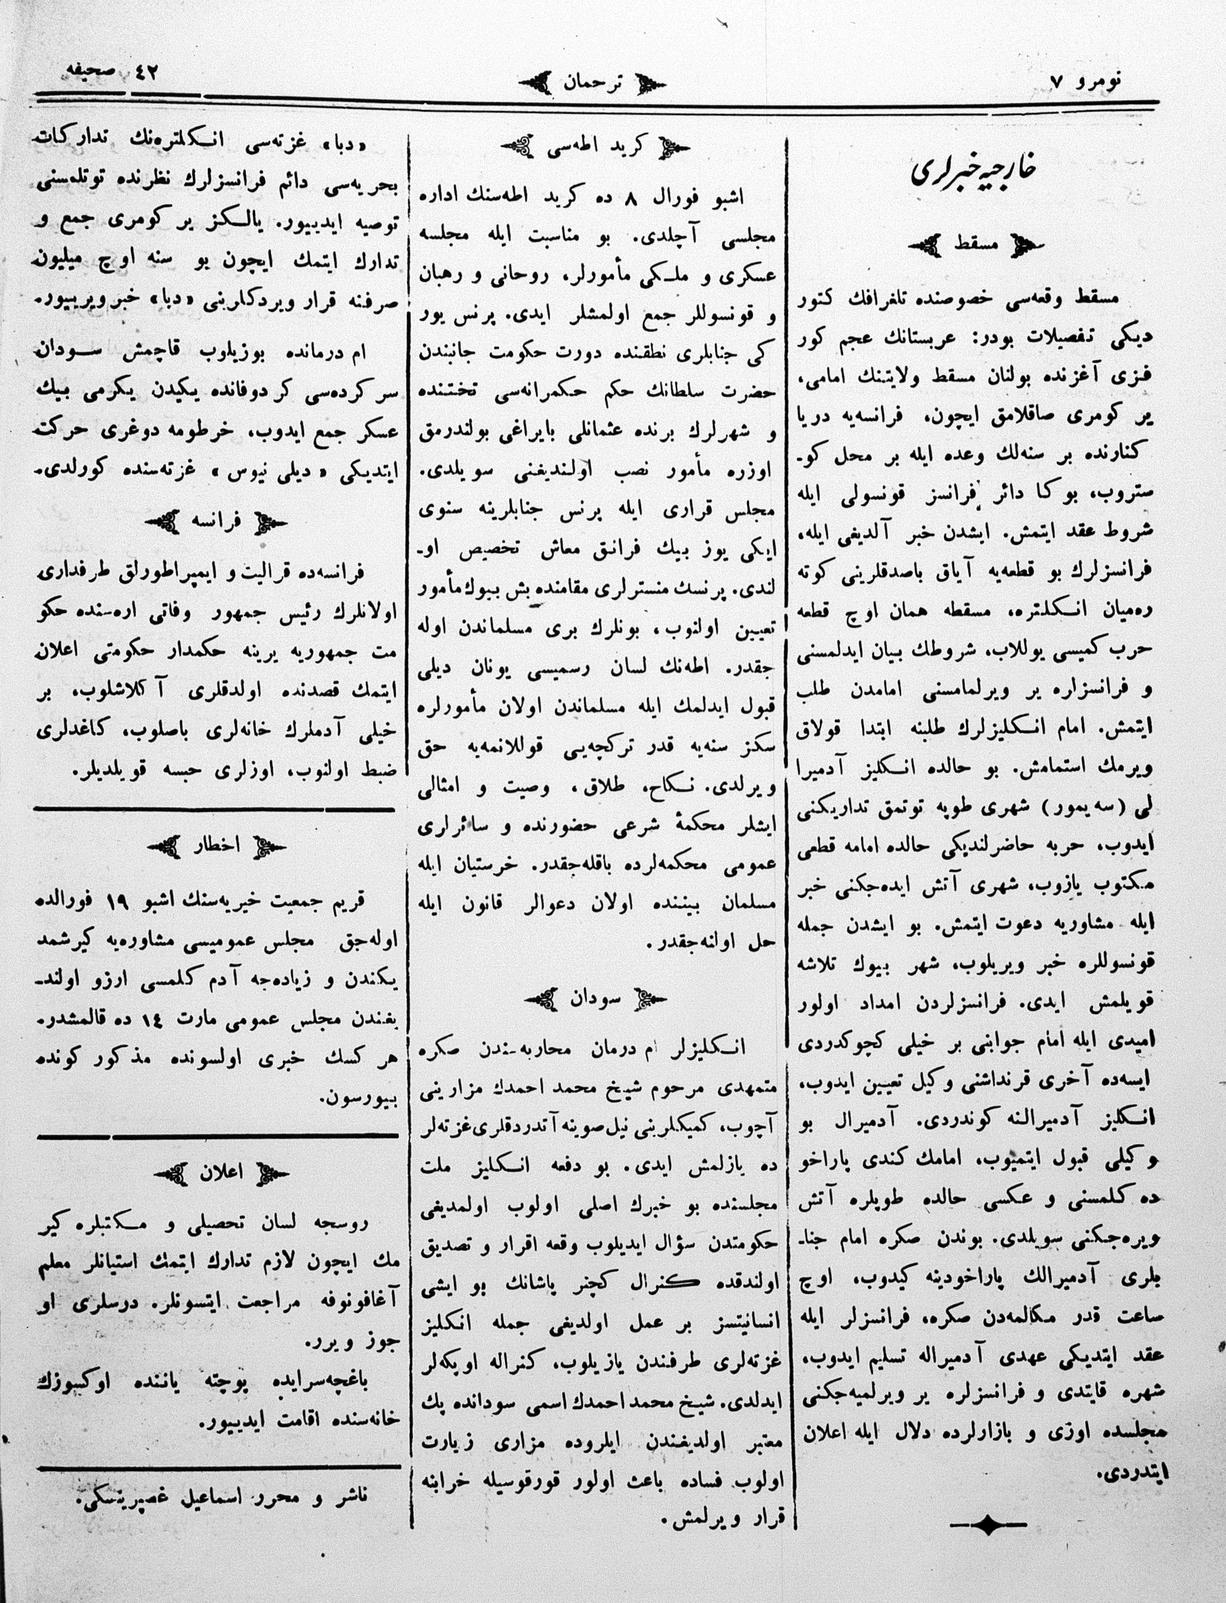 نومرو ٧
ترجمان
٤٢ صحیفه
خارجیه خبرلری
مسقط
مسقط وقعه‌سی خصوصنده تلغرافك كتور
دیكی تفصیلات بودر: عربستانك عجم كور
فزی آغزنده بولنان مسقط ولایتنك امامی،
یر كومری صاقلامق ایچون، فرانسه‌یه دریا
كنارنده بر سنه‌لك وعده ایله بر محل كو-
ستروب، بوكا دائر فرانسز قونسولی ایله
شروط عقد ایتمش. ایشدن خبر آلدیغی ایله،
فرانسزلرك بو قطعه‌یه آیاق باصدقلرینی كوته
ره‌میان انكلتره، مسقطه همان اوچ قطعه
حرب كمیسی یوللاب، شروطك بیان ایدلمسنی
و فرانسزاره یر ویرلمامسنی امامدن طلب
ایتمش. امام انكلیزلرك طلبنه ابتدا قولاق
ویرمك استمامش. بو حالده انكلیز آدمیرا
لی (سه‌یمور) شهری طوپه توتمق تداریكنی
ایدوب، حربه حاضرلندیكی حالده امامه قطعی
مكتوب یازوب، شهری آتش ایده‌جكنی خبر
ایله مشاوریه دعوت ایتمش. بو ایشدن جمله
قونسوللره خبر ویریلوب، شهر بیوك تلاشه
قویلمش ایدی. فرانسزلردن امداد اولور
امیدی ایله امام جوابنی بر خیلی كچوكدردی
ایسه‌ده آخری قرنداشنی وكیل تعیین ایدوب،
انكلیز آدمیرالنه كوندردی. آدمیرال بو
وكیلی قبول ایتمیوب، امامك كندی پاراخو
ده كلمسنی و عكسی حالده طوپلره آتش
ویره‌جكنی سویلدی. بوندن صكره امام جنا-
بلری آدمیرالك پاراخودینه كیدوب، اوچ
ساعت قدر مكالمه‌دن صكره، فرانسزلر ایله
عقد ایتدیكی عهدی آدمیراله تسلیم ایدوب،
شهره قایتدی و فرانسزلره یر ویرلمیه‌جكنی
مجلسده اوزی و بازارلرده دلال ایله اعلان
ایتدردی.
كرید اطه‌سی
اشبو فورال ٨ ده كرید اطه‌سنك اداره
مجلسی آچلدی. بو مناسبت ایله مجلسه
عسكری و ملكی مأمورلر، روحانی و رهبان
و قونسوللر جمع اولمشلر ایدی. پرنس یور
كی جنابلری نطقنده دورت حكومت جانبندن
حضرت سلطانك حكم حكمرانه‌سی تختنده
و شهرلرك برنده عثمانلی بایراغی بولندرمق
اوزره مأمور نصب اولندیغنی سویلدی.
مجلس قراری ایله پرنس جنابلرینه سنوی
ایكی یوز بیك فرانق معاش تخصیص او-
لندی. پرنسك منسترلری مقامنده بش بیوك مأمور
تعیین اولنوب، بونلرك بری مسلماندن اوله
جقدر. اطه‌نك لسان رسمیسی یونان دیلی
قبول ایدلمك ایله مسلماندن اولان مأمورلره
سكز سنه‌یه قدر تركچه‌یی قوللانمه‌یه حق
ویرلدی. نكاح، طلاق، وصیت و امثالی
ایشلر محكمهٔ شرعی حضورنده و سائرلری
عمومی محكمه‌لرده باقله‌جقدر. خرستیان ایله
مسلمان بیننده اولان دعوالر قانون ایله
حل اولنه‌جقدر.
سودان
انكلیزلر ام درمان محاربه‌ندن صكره
متمهدی مرحوم شیخ محمد احمدك مزارینی
آچوب، كمیكلرینی نیل صوینه آتدردقلری غزته‌لر
ده یازلمش ایدی. بو دفعه انكلیز ملت
مجلسنده بو خبرك اصلی اولوب اولمدیغی
حكومتدن سؤال ایدیلوب وقعه اقرار و تصدیق
اولندقده كنرال كچنر پاشانك بو ایشی
انسانیتسز بر عمل اولدیغی جمله انكلیز
غزته‌لری طرفندن یازیلوب، كنراله اوپكه‌لر
ایدلدی. شیخ محمد احمدك اسمی سودانده پك
معتبر اولدیغندن ایلروده مزاری زیارت
اولوب فساده باعث اولور قورقوسیله خرابنه
قرار ویرلمش.
«دبا» غزته‌سی انكلتره‌نك تداركات
بحریه‌سی دائم فرانسزلرك نظرنده توتلمسنی
توصیه ایدییور. یالكز یر كومری جمع و
تدارك ایتمك ایچون بو سنه اوچ میلیون
صرفنه قرار ویردكلرینی «دبا» خبر ویرییور.
ام درمانده بوزیلوب قاچمش سودان
سركرده‌سی كردوفانده یكیدن یكرمی بیك
عسكر جمع ایدوب، خرطومه دوغری حركت
ایتدیكی «دیلی نیوس» غزته‌سنده كورلدی.
فرانسه
فرانسه‌ده قرالیت و ایمپراطورلق طرفداری
اولانلرك رئیس جمهور وفاتی اره‌سنده حكو
مت جمهوریه یرینه حكمدار حكومتی اعلان
ایتمك قصدنده اولدقلری آكلاشلوب، بر
خیلی آدملرك خانه‌لری باصلوب، كاغدلری
ضبط اولنوب، اوزلری حبسه قویلدیلر.
اخطار
قریم جمعیت خیریه‌سنك اشبو ١٩ فورالده
اوله‌جق مجلس عمومیسی مشاوره‌یه كیرشمد
یكندن و زیاده‌جه آدم كلمسی ارزو اولند-
یغندن مجلس عمومی مارت ١٤ ده قالمشدر.
هر كسك خبری اولسونده مذكور كونده
بیورسون.
اعلان
روسجه لسان تحصیلی و مكتبلره كیر
مك ایچون لازم تدارك ایتمك استیانلر معلم
آغافونوفه مراجعت ایتسونلر. درسلری او
جوز ویرر.
باغچه‌سرایده پوچته یاننده اوكسوزك
خانه‌سنده اقامت ایدییور.
ناشر و محرر اسماعیل غصپرینسكی.